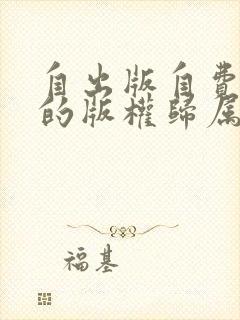 自出版自費
的版權歸屬
福基